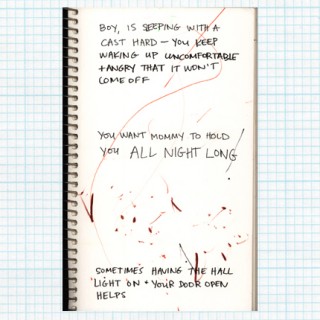 BOY, IS SEEPING WITH A
CAST HARD – YOU KEEP
WAKING UP UNCOMFORTABLE
+ ANGRY THAT IT WON'T
COME OFF
YOU WANT MOMMY TO HOLD
YOU ALL NIGHT LONG
SOMETIMES HAVING THE HALL
LIGHT ON + YOUR DOOR OPEN
HELPS